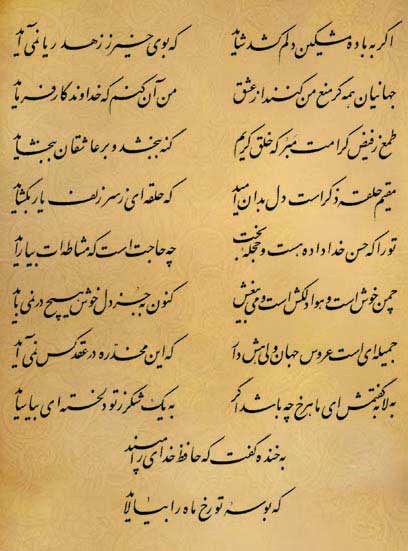 اگر به باده مشکین دلم کشد شاید که بوی خیر ز زهد ریا نمی آید
جهانیان همه گر منع من کنند از عشق من آن کنم که خداوندگار فرماید
طمع ز فیض کرامت مبر که خلق کریم گنه ببخشد و بر عاشقان ببخشاید
مقیم حلقه ذکر است دل بدان امید که حلقه ای ز سر زلف یار بگشاید
تو را که حسن خداداده هست و حجله بخت چه حاجت است که مشاطه ات بیاراید
چمن خوش است و هوا دلکش است و می بیغش کنون به جز دل خوش هیچ در نمی باید
جمیله ای است عروس جهان ولی هش دار که این مخدره در عقد کس نمی آید
به لابه گفتمش ای ماهرخ چه باشد اگر به یک شکر ز تو دلخسته ای بیاساید
به خنده گفت که حافظ خدای را مپسند
که بوسه تو رخ ماه را بیالاید